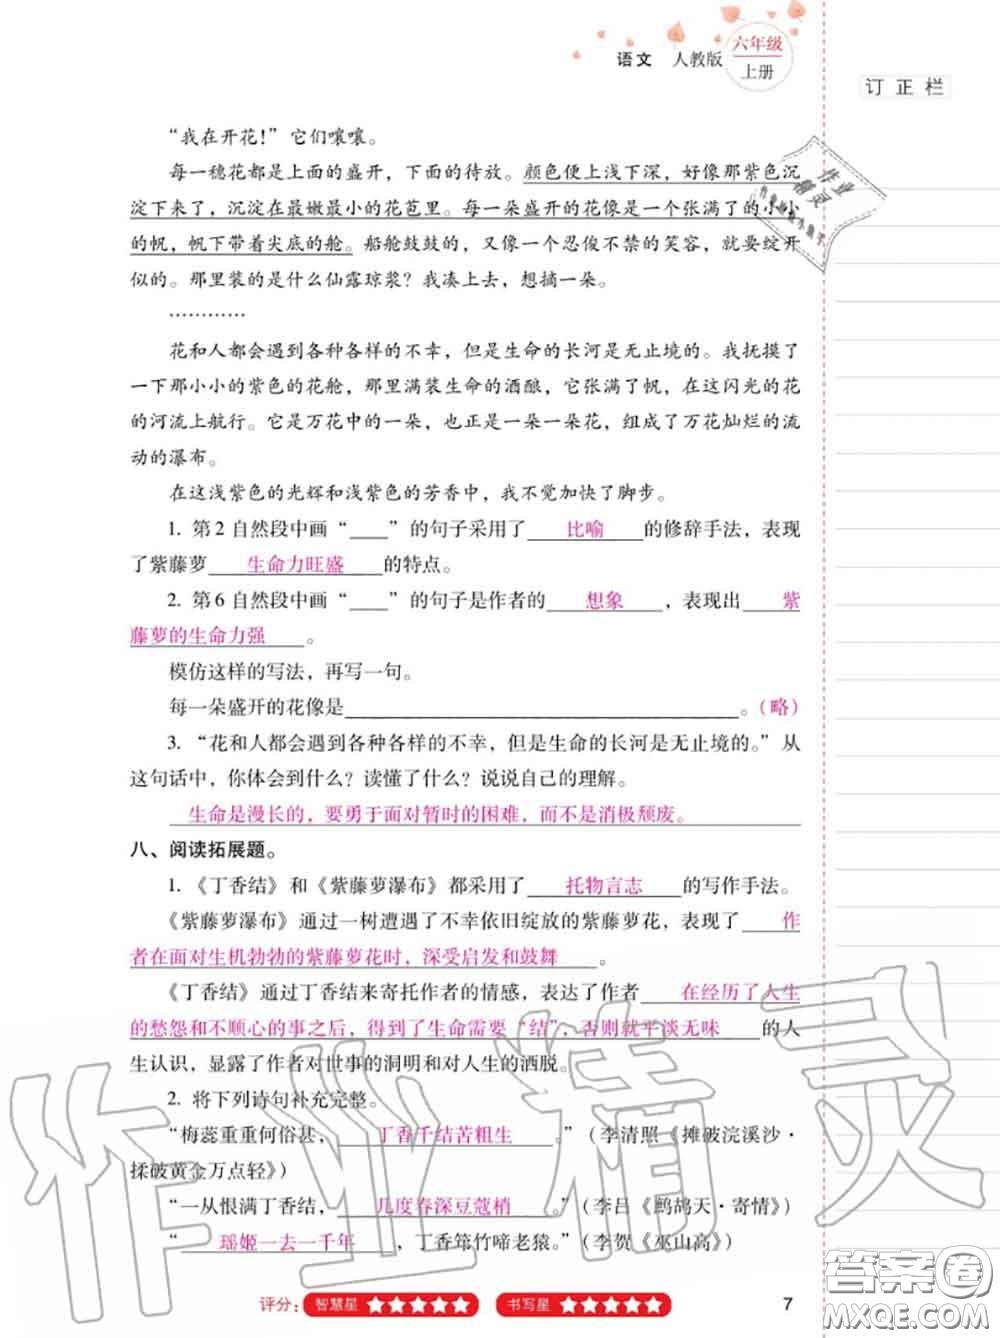 语文 人教版 六年级
上册
订正栏
“我在开花！”它们嚷嚷。
每一穗花都是上面的盛开，下面的待放。颜色便上浅下深，好像那紫色沉
淀下来了，沉淀在最嫩最小的花苞里。每一朵盛开的花像是一个张满了的小小
的帆，帆下带着尖底的舱。船舱鼓鼓的，又像一个忍俊不禁的笑容，就要绽开
似的。那里装的是什么仙露琼浆？我凑上去，想摘一朵。
…………
花和人都会遇到各种各样的不幸，但是生命的长河是无止境的。我抚摸了
一下那小小的紫色的花舱，那里满装生命的酒酿，它张满了帆，在这闪光的花
的河流上航行。它是万花中的一朵，也正是一朵一朵花，组成了万花灿烂的流
动的瀑布。
在这浅紫色的光辉和浅紫色的芳香中，我不觉加快了脚步。
1. 第2自然段中画“____”的句子采用了 比喻 的修辞手法，表现
了紫藤萝 生命力旺盛 的特点。
2. 第6自然段中画“____”的句子是作者的 想象 ，表现出 紫
藤萝的生命力强 。
模仿这样的写法，再写一句。
每一朵盛开的花像是____。（略）
3. “花和人都会遇到各种各样的不幸，但是生命的长河是无止境的。”从
这句话中，你体会到什么？读懂了什么？说说自己的理解。
生命是漫长的，要勇于面对暂时的困难，而不是消极颓废。
八、阅读拓展题。
1. 《丁香结》和《紫藤萝瀑布》都采用了 托物言志 的写作手法。
《紫藤萝瀑布》通过一树遭遇了不幸依旧绽放的紫藤萝花，表现了 作
者在面对生机勃勃的紫藤萝花时，深受启发和鼓舞 。
《丁香结》通过丁香结来寄托作者的情感，表达了作者 在经历了人生
的愁怨和不顺心的事之后，得到了生命需要“结”，否则就平谈无味 的人
生认识，显露了作者对世事的洞明和对人生的洒脱。
2. 将下列诗句补充完整。
“梅蕊重重何俗甚， 丁香千结苦粗生 。”（李清照《摊破浣溪沙·
揉破黄金万点轻》）
“一从恨满丁香结， 几度春深豆蔻梢 。”（李吕《鹧鸪天·寄情》）
“ 瑶姬一去一千年 ，丁香筇竹啼老猿。”（李贺《巫山高》）
评分： 智慧星 ★★★★★ 书写星 ★★★★★
7
作业精灵
作业精灵
答案圈
MXQE.COM